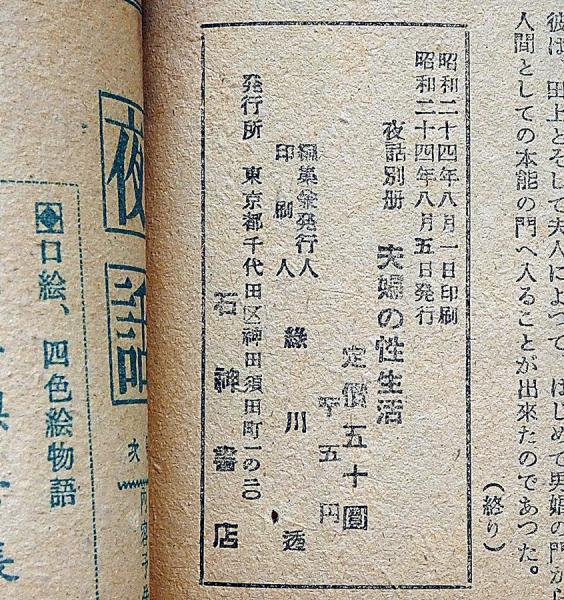 彼は、田上とそして夫人によつて、はじめて男娼の門から
人間としての本能の門へ入ることが出来たのであつた。
(終り)
昭和二十四年八月一日印刷
昭和二十四年八月五日発行
夜話別册 夫婦の性生活
定價五十圓
〒五円
編集兼発行人
印刷人 緑川透
発行所 東京都千代田区神田須田町一の二〇
石神書店
夜話
口絵、四色絵物語